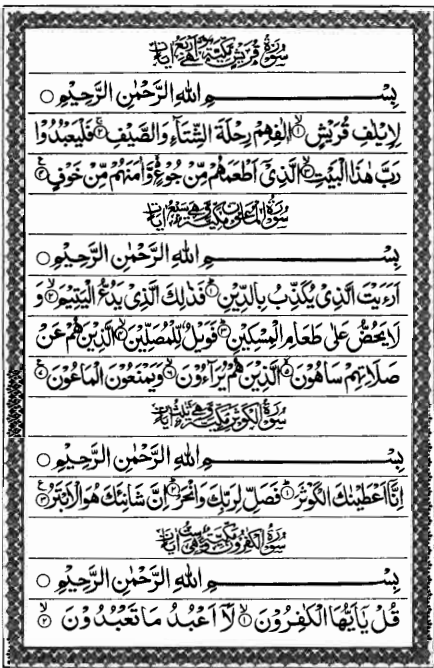 سُوْرَةُ قُرَيْشٍ مَكِّيَّةٌ وَّهِيَ اَرْبَعُ اٰيَاتٍ
بِسْمِ اللّٰهِ الرَّحْمٰنِ الرَّحِيْمِ ○
لِاِيْلٰفِ قُرَيْشٍ ۙ۱ اٖلٰفِهِمْ رِحْلَةَ الشِّتَآءِ وَالصَّيْفِ ۚ۲ فَلْيَعْبُدُوْا
رَبَّ هٰذَا الْبَيْتِ ۙ۳ الَّذِيْٓ اَطْعَمَهُمْ مِّنْ جُوْعٍ ۙ وَّاٰمَنَهُمْ مِّنْ خَوْفٍ ۴
سُوْرَةُ الْمَاعُوْنِ مَكِّيَّةٌ وَّهِيَ سَبْعُ اٰيَاتٍ
بِسْمِ اللّٰهِ الرَّحْمٰنِ الرَّحِيْمِ ○
اَرَءَيْتَ الَّذِيْ يُكَذِّبُ بِالدِّيْنِ ؕ۱ فَذٰلِكَ الَّذِيْ يَدُعُّ الْيَتِيْمَ ۙ۲ وَ
لَا يَحُضُّ عَلٰى طَعَامِ الْمِسْكِيْنِ ؕ۳ فَوَيْلٌ لِّلْمُصَلِّيْنَ ۙ۴ الَّذِيْنَ هُمْ عَنْ
صَلَاتِهِمْ سَاهُوْنَ ۙ۵ الَّذِيْنَ هُمْ يُرَآءُوْنَ ۙ۶ وَيَمْنَعُوْنَ الْمَاعُوْنَ ۷
سُوْرَةُ الْكَوْثَرِ مَكِّيَّةٌ وَّهِيَ ثَلٰثُ اٰيَاتٍ
بِسْمِ اللّٰهِ الرَّحْمٰنِ الرَّحِيْمِ ○
اِنَّآ اَعْطَيْنٰكَ الْكَوْثَرَ ؕ۱ فَصَلِّ لِرَبِّكَ وَانْحَرْ ؕ۲ اِنَّ شَانِئَكَ هُوَ الْاَبْتَرُ ۳
سُوْرَةُ الْكٰفِرُوْنَ مَكِّيَّةٌ وَّهِيَ سِتُّ اٰيَاتٍ
بِسْمِ اللّٰهِ الرَّحْمٰنِ الرَّحِيْمِ ○
قُلْ يٰٓاَيُّهَا الْكٰفِرُوْنَ ۙ۱ لَآ اَعْبُدُ مَا تَعْبُدُوْنَ ۙ۲